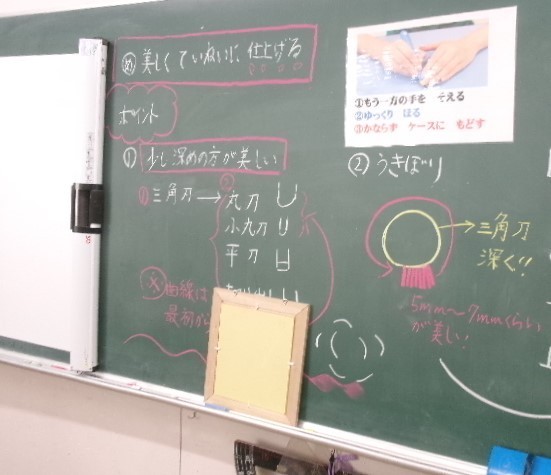 め 美しくていねいに 仕上げる
ポイント
① 少し深めの方が美しい
① 三角刀→ ② 丸刀
小丸刀
平刀
※ 曲線は
最初から
①もう一方の手を そえる
②ゆっくり ほる
③かならず ケースに もどす
② うきぼり
→三角刀
深く!!
5mm〜7mmくらい
が美しい!